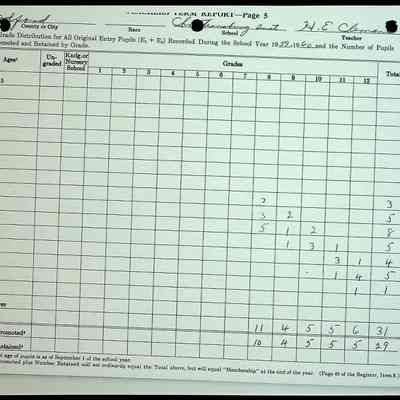 TERM REPORT—Page 5
County or City Race School Teacher
Grade Distribution for All Original Entry Pupils (E₁ + E₂) Recorded During the School Year 1959-1960 and the Number of Pupils
Promoted and Retained by Grade.
Ages¹ Un-graded Kndg. or Nursery School Grades Total
1 2 3 4 5 6 7 8 9 10 11 12
3
3 2 5
5 1 2 8
1 3 1 5
3 1 4
1 4 5
1 1
11 4 5 5 6 31
10 4 5 5 5 29
age of pupils is as of September 1 of the school year.
promoted plus Number Retained will not ordinarily equal the Total above, but will equal "Membership" at the end of the year. (Page 49 of the Register, Item 8.)